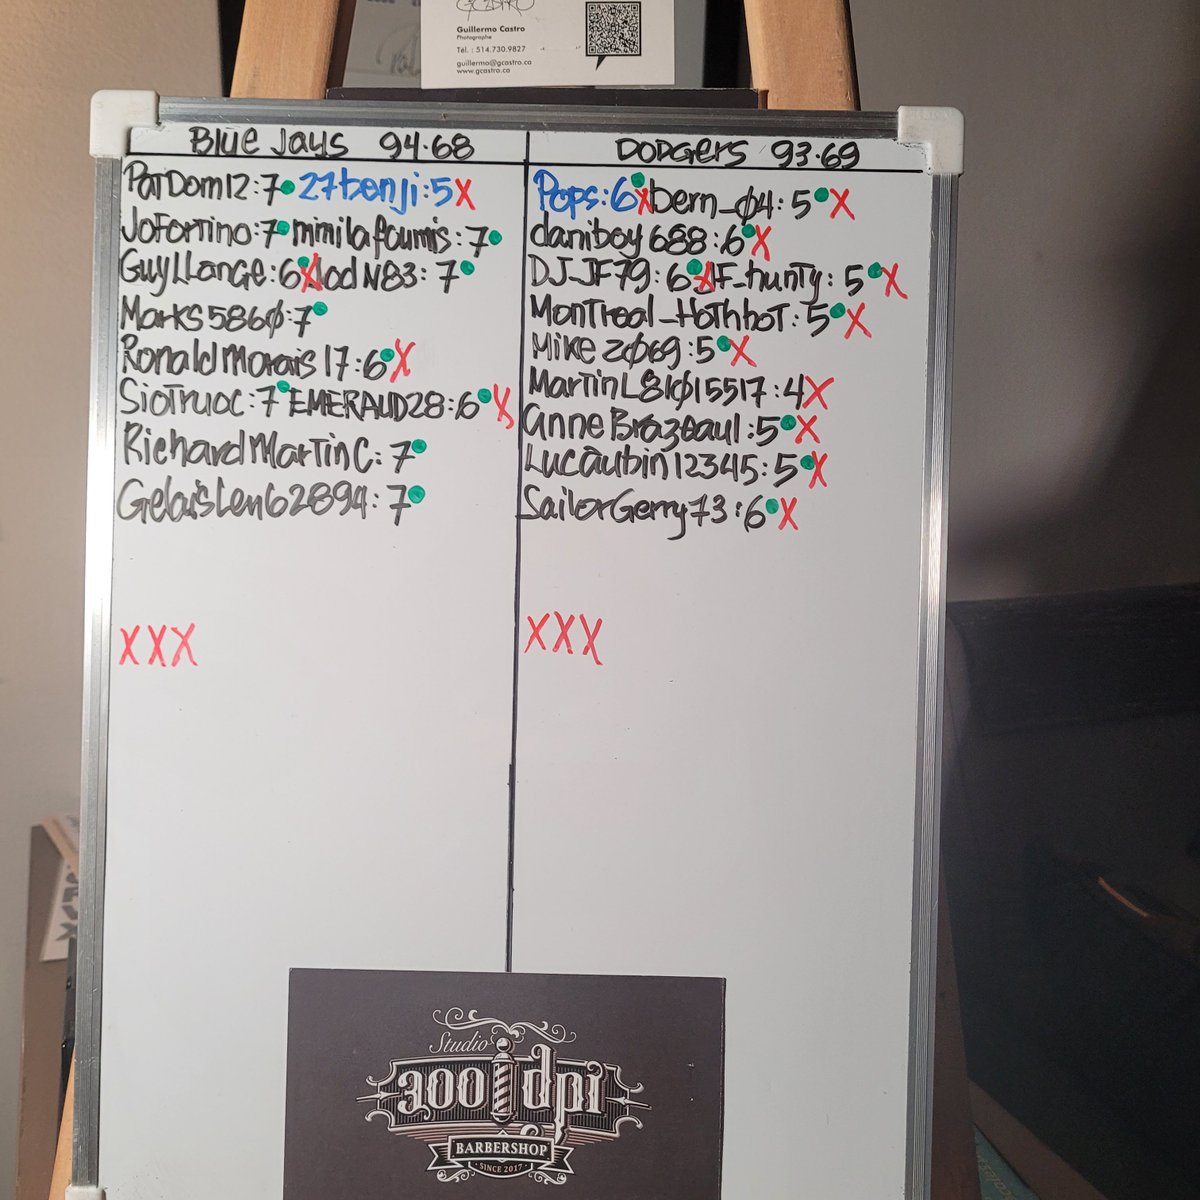 Guillermo Castro
Photographe
Tél. : 514.730.9827
guillermo@gcastro.ca
www.gcastro.ca
Blue Jays 94-68
PatDom12:7 27benji:5X
JoFortino:7 mimilafoumis:7
GuyLLange:6X JodN83:7
Marks5860:7
RonaldMorais17:6X
SioTruoc:7 EMERAUD28:6X
RichardMartinC:7
GelaisLen62894:7
XXX
DODGERS 93-69
Pops:6X bern_04:5X
daniboy688:6X
DJ_JF79:6X JF_hunty:5X
Montreal_Hothbot:5X
Mike2069:5X
MartinL81015517:4X
anneBrazeau1:5X
Lucaubin12345:5X
SailorGerry73:6X
XXX
Studio
300 dpi
BARBERSHOP
SINCE 2017